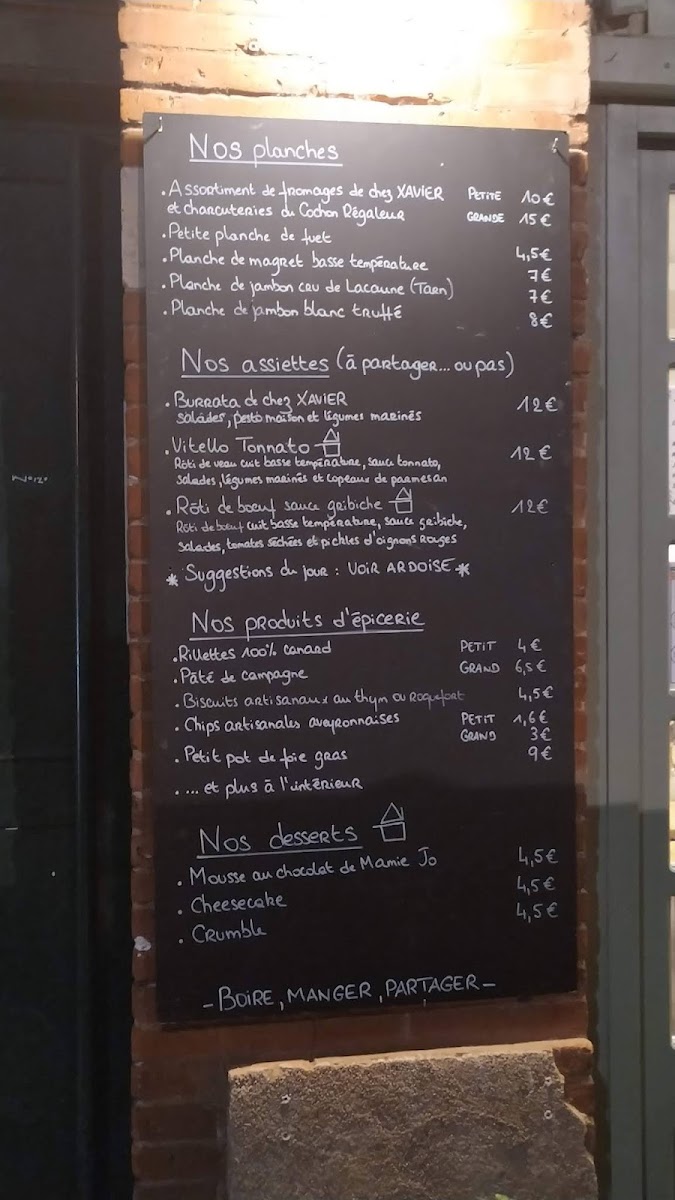 Nos planches
. Assortiment de fromages de chez XAVIER PETITE 10€
et charcuteries du Cochon Régaleur GRANDE 15€
. Petite planche de fuet 4,5€
. Planche de magret basse température 7€
. Planche de jambon cru de Lacaune (Tarn) 7€
. Planche de jambon blanc truffé 8€
Nos assiettes (à partager... ou pas)
. Burrata de chez XAVIER 12€
salades, pesto maison et légumes marinés
. Vitello Tonnato 12€
Rôti de veau cuit basse température, sauce tonnato,
salades, légumes marinés et copeaux de parmesan
. Rôti de boeuf sauce gribiche 12€
Rôti de boeuf cuit basse température, sauce gribiche,
salades, tomates séchées et pickles d'oignons rouges
* Suggestions du jour : VOIR ARDOISE *
Nos produits d'épicerie
. Rillettes 100% canard PETIT 4€
. Pâté de campagne GRAND 6,5€
. Biscuits artisanaux au thym ou Roquefort 4,5€
. Chips artisanales aveyronnaises PETIT 1,6€
GRAND 3€
. Petit pot de foie gras 9€
. ... et plus à l'intérieur
Nos desserts
. Mousse au chocolat de Mamie Jo 4,5€
. Cheesecake 4,5€
. Crumble 4,5€
- BOIRE, MANGER, PARTAGER -